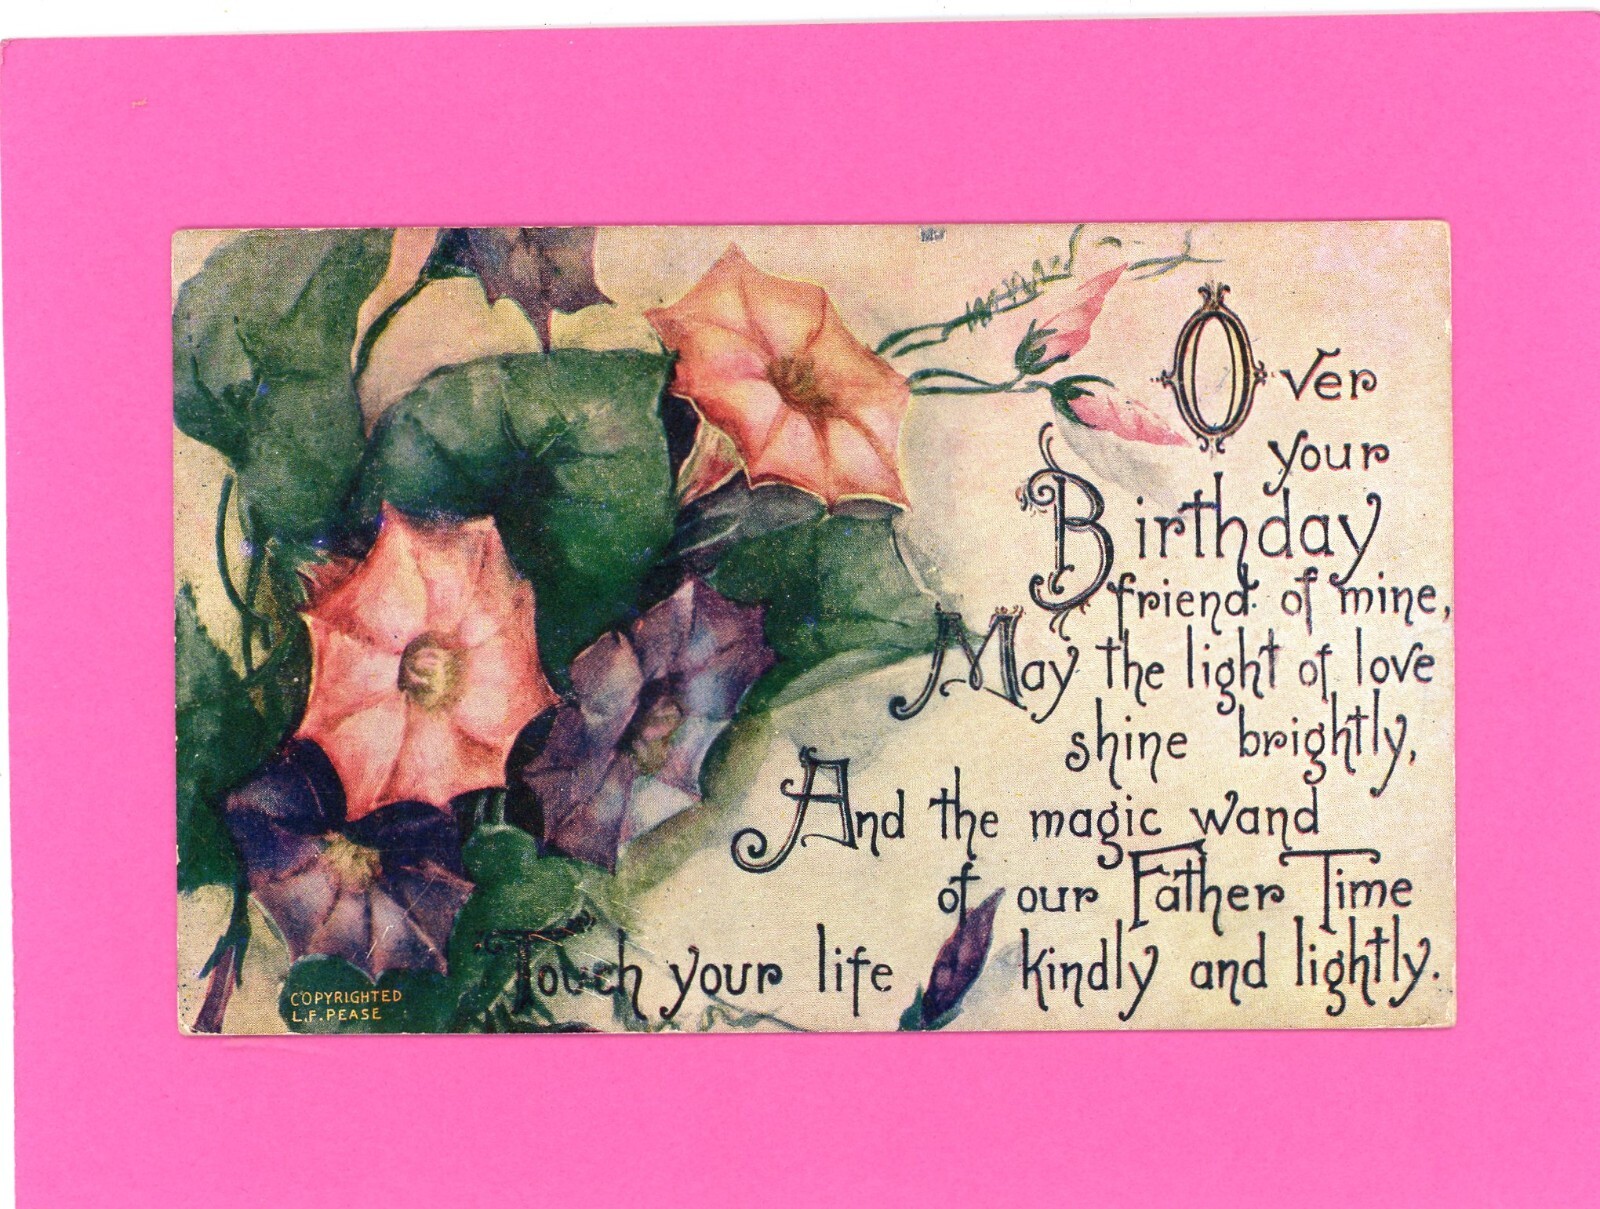 Over
your
Birthday
friend of mine,
May the light of love
shine brightly,
And the magic wand
of our Father Time
Touch your life kindly and lightly.
COPYRIGHTED
L.F. PEASE